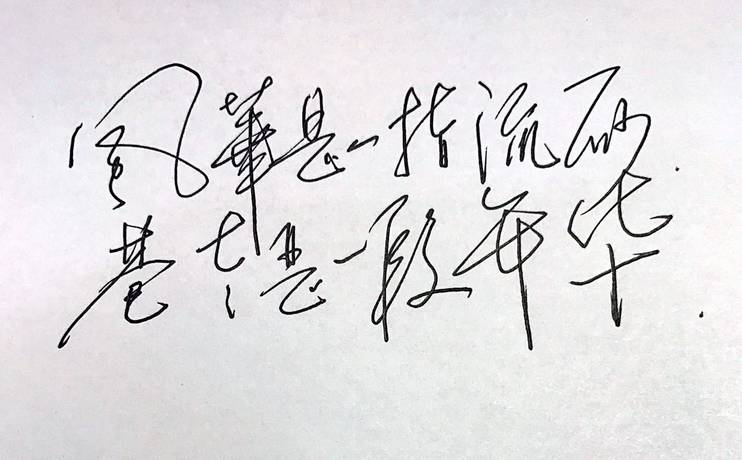 風華是一指流砂.
苍老是一段年华.